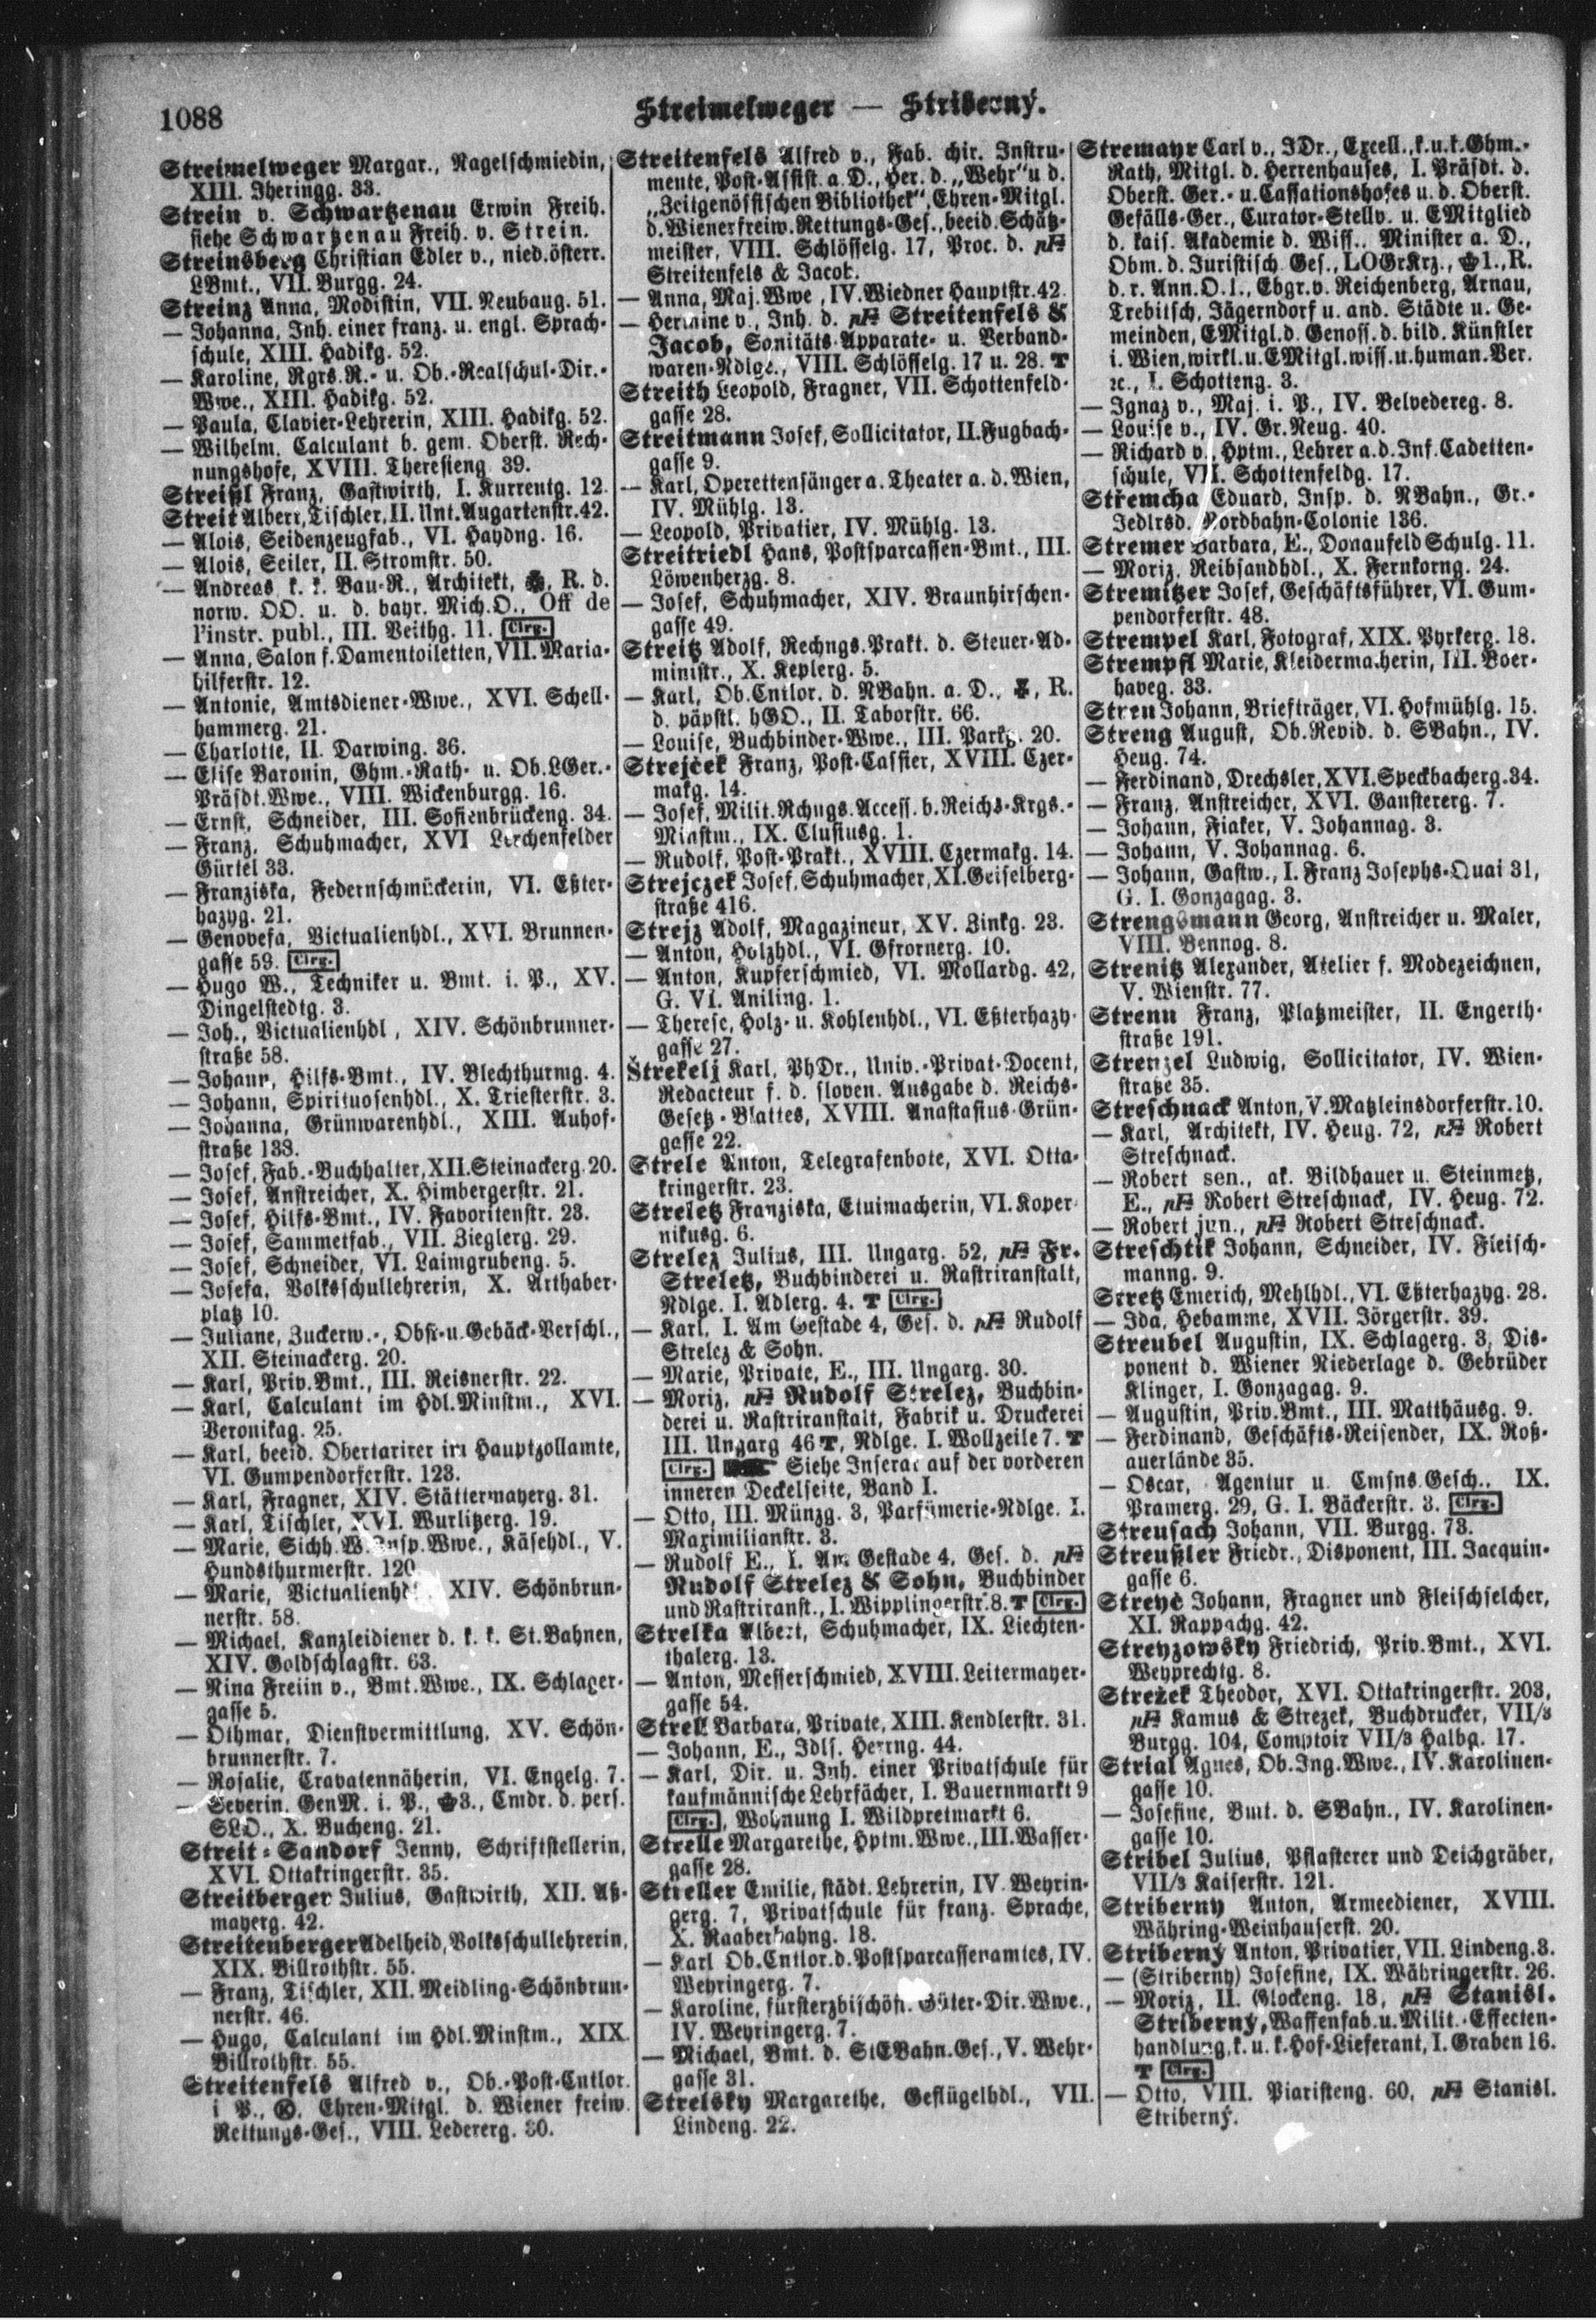 1088
Streimelweger — Striberný.
Streimelweger Margar., Nagelschmiedin,
XIII. Iheringg. 33.
Strein v. Schwartzenau Erwin Freih.
siehe Schwartzenau Freih. v. Strein.
Streinsberg Christian Edler v., nied.österr.
LBmt., VII. Burgg. 24.
Streinz Anna, Modistin, VII. Neubaug. 51.
— Johanna, Inh. einer franz. u. engl. Sprach-
schule, XIII. Hadikg. 52.
— Karoline, Rgrs.R.- u. Ob.-Realschul-Dir.-
Wwe., XIII. Hadikg. 52.
— Paula, Clavier-Lehrerin, XIII. Hadikg. 52.
— Wilhelm, Calculant b. gem. Oberst. Rech-
nungshofe, XVIII. Theresieng. 39.
Streißl Franz, Gastwirth, I. Kurrentg. 12.
Streit Albert, Tischler, II. Unt. Augartenstr. 42.
— Alois, Seidenzeugfab., VI. Haydng. 16.
— Alois, Seiler, II. Stromstr. 50.
— Andreas k. k. Bau-R., Architekt, R. d.
norw. OO. u. d. bayr. Mich.O., Off de
l'instr. publ., III. Veithg. 11. Clrg.
— Anna, Salon f. Damentoiletten, VII. Maria-
hilferstr. 12.
— Antonie, Amtsdiener-Wwe., XVI. Schell-
hammerg. 21.
— Charlotte, II. Darwing. 36.
— Elise Baronin, Ghm.-Rath- u. Ob.LGer.-
Präsdt.Wwe., VIII. Wickenburgg. 16.
— Ernst, Schneider, III. Sofienbrückeng. 34.
— Franz, Schuhmacher, XVI Lerchenfelder
Gürtel 33.
— Franziska, Federnschmückerin, VI. Eßter-
hazyg. 21.
— Genovefa, Victualienhdl., XVI. Brunnen-
gasse 59. Clrg.
— Hugo W., Techniker u. Bmt. i. P., XV.
Dingelstedtg. 3.
— Joh., Victualienhdl, XIV. Schönbrunner-
straße 58.
— Johann, Hilfs-Bmt., IV. Blechthurmg. 4.
— Johann, Spirituosenhdl., X. Triesterstr. 3.
— Johanna, Grünwarenhdl., XIII. Auhof-
straße 133.
— Josef, Fab.-Buchhalter, XII. Steinackerg. 20.
— Josef, Anstreicher, X. Himbergerstr. 21.
— Josef, Hilfs-Bmt., IV. Favoritenstr. 23.
— Josef, Sammetfab., VII. Zieglerg. 29.
— Josef, Schneider, VI. Laimgrubeng. 5.
— Josefa, Volksschullehrerin, X. Arthaber-
platz 10.
— Juliane, Zuckerw.-, Obst-u.Gebäck-Verschl.,
XII. Steinackerg. 20.
— Karl, Priv.Bmt., III. Reisnerstr. 22.
— Karl, Calculant im Hdl.Minstm., XVI.
Veronikag. 25.
— Karl, beeid. Obertarirer im Hauptzollamte,
VI. Gumpendorferstr. 123.
— Karl, Fragner, XIV. Stättermayerg. 31.
— Karl, Tischler, XVI. Wurlitzerg. 19.
— Marie, Sichh.W.Insp.Wwe., Käsehdl., V.
Hundsthurmerstr. 120
— Marie, Victualienhdl XIV. Schönbrun-
nerstr. 58.
— Michael, Kanzleidiener d. k. k. St.Bahnen,
XIV. Goldschlagstr. 63.
— Nina Freiin v., Bmt.Wwe., IX. Schlager-
gasse 5.
— Othmar, Dienstvermittlung, XV. Schön-
brunnerstr. 7.
— Rosalie, Cravatennäherin, VI. Engelg. 7.
— Severin, GenM. i. P., 3., Cmdr. d. pers.
SLO., X. Bucheng. 21.
Streit-Sandorf Jenny, Schriftstellerin,
XVI. Ottakringerstr. 35.
Streitberger Julius, Gastwirth, XII. Aß-
mayerg. 42.
Streitenberger Adelheid, Volksschullehrerin,
XIX. Billrothstr. 55.
— Franz, Tischler, XII. Meidling-Schönbrun-
nerstr. 46.
— Hugo, Calculant im Hdl.Minstm., XIX.
Billrothstr. 55.
Streitenfels Alfred v., Ob.-Post-Cntlor.
i P., Ehren-Mitgl. d. Wiener freiw.
Rettungs-Ges., VIII. Ledererg. 30.
Streitenfels Alfred v., Fab. chir. Instru-
mente, Post-Assist. a. D., Her. d. „Wehr“ u d.
„Zeitgenössischen Bibliothek“, Ehren-Mitgl.
d. Wiener freiw. Rettungs-Ges., beeid. Schätz-
meister, VIII. Schlösselg. 17, Proc. d.
Streitenfels & Jacob.
— Anna, Maj. Wwe, IV. Wiedner Hauptstr. 42.
— Hermine v., Inh. d. Streitenfels &
Jacob, Sanitäts-Apparate- u. Verband-
waren-Ndlge., VIII. Schlösselg. 17 u. 28. T
Streith Leopold, Fragner, VII. Schottenfeld-
gasse 28.
Streitmann Josef, Sollicitator, II. Fugbach-
gasse 9.
— Karl, Operettensänger a. Theater a. d. Wien,
IV. Mühlg. 13.
— Leopold, Privatier, IV. Mühlg. 13.
Streitriedl Hans, Postsparcassen-Bmt., III.
Löwenherzg. 8.
— Josef, Schuhmacher, XIV. Braunhirschen-
gasse 49.
Streitz Adolf, Rechngs.Prakt. d. Steuer-Ad-
ministr., X. Keplerg. 5.
— Karl, Ob.Cntlor. d. NBahn. a. D., R.
d. päpstl. hGO., II. Taborstr. 66.
— Louise, Buchbinder-Wwe., III. Parkg. 20.
Strejček Franz, Post-Cassier, XVIII. Czer-
makg. 14.
— Josef, Milit.Rchngs.Access. b. Reichs-Krgs.-
Minstm., IX. Clusiusg. 1.
— Rudolf, Post-Prakt., XVIII. Czermakg. 14.
Strejczek Josef, Schuhmacher, XI. Geiselberg-
straße 416.
Strejz Adolf, Magazineur, XV. Zinkg. 23.
— Anton, Holzhdl., VI. Gfrornerg. 10.
— Anton, Kupferschmied, VI. Mollardg. 42,
G. VI. Aniling. 1.
— Therese, Holz- u. Kohlenhdl., VI. Eßterhazy-
gasse 27.
Štrekelj Karl, PhDr., Univ.-Privat-Docent,
Redacteur f. d. sloven. Ausgabe d. Reichs-
Gesetz-Blattes, XVIII. Anastasius-Grün-
gasse 22.
Strele Anton, Telegrafenbote, XVI. Otta-
kringerstr. 23.
Streletz Franziska, Etuimacherin, VI. Koper-
nikusg. 6.
Strelez Julius, III. Ungarg. 52, Fr.
Streletz, Buchbinderei u. Rastriranstalt,
Ndlge. I. Adlerg. 4. T Clrg.
— Karl, I. Am Gestade 4, Ges. d. Rudolf
Strelez & Sohn.
— Marie, Private, E., III. Ungarg. 30.
— Moriz, Rudolf Strelez, Buchbin-
derei u. Rastriranstalt, Fabrik u. Druckerei
III. Ungarg 46 T, Ndlge. I. Wollzeile 7. T
Clrg. Siehe Inserat auf der vorderen
inneren Deckelseite, Band I.
— Otto, III. Münzg. 3, Parfümerie-Ndlge. I.
Maximilianstr. 3.
— Rudolf E., I. Am Gestade 4, Ges. d.
Rudolf Strelez & Sohn, Buchbinder
und Rastriranst., I. Wipplingerstr. 8. T Clrg.
Strelka Albert, Schuhmacher, IX. Liechten-
thalerg. 13.
— Anton, Messerschmied, XVIII. Leitermayer-
gasse 54.
Strell Barbara, Private, XIII. Kendlerstr. 31.
— Johann, E., Jdls. Herrng. 44.
— Karl, Dir. u. Inh. einer Privatschule für
kaufmännische Lehrfächer, I. Bauernmarkt 9
Clrg., Wohnung I. Wildpretmarkt 6.
Strelle Margarethe, Hptm.Wwe., III. Wasser-
gasse 28.
Streller Emilie, städt. Lehrerin, IV. Weyrin-
gerg. 7, Privatschule für franz. Sprache,
X. Raaberbahng. 18.
— Karl Ob.Cntlor.d.Postsparcassenamtes, IV.
Weyringerg. 7.
— Karoline, fürsterzbischöfl. Güter-Dir.Wwe.,
IV. Weyringerg. 7.
— Michael, Bmt. d. StEBahn.Ges., V. Wehr-
gasse 31.
Strelsky Margarethe, Geflügelhdl., VII.
Lindeng. 22.
Stremayr Carl v., JDr., Excell., k.u.k. Ghm.-
Rath, Mitgl. d. Herrenhauses, I. Präsdt. d.
Oberst. Ger.- u. Cassationshofes u. d. Oberst.
Gefälls-Ger., Curator-Stellv. u. EMitglied
d. kais. Akademie d. Wiss., Minister a. D.,
Obm. d. Juristisch Ges., LOGrKrz., 1., R.
d. r. Ann.O.1., Ebgr. v. Reichenberg, Arnau,
Trebitsch, Jägerndorf u. and. Städte u. Ge-
meinden, EMitgl. d. Genoss. d. bild. Künstler
i. Wien, wirkl. u. EMitgl. wiss. u. human. Ver.
ec., I. Schotteng. 3.
— Ignaz v., Maj. i. P., IV. Belvedereg. 8.
— Louise v., IV. Gr. Neug. 40.
— Richard v., Hptm., Lehrer a. d. Inf. Cadetten-
schule, VII. Schottenfeldg. 17.
Střemcha Eduard, Insp. d. NBahn., Gr.-
Jedlrsd. Nordbahn-Colonie 136.
Stremer Barbara, E., Donaufeld Schulg. 11.
— Moriz, Reibsandhdl., X. Fernkorng. 24.
Stremitzer Josef, Geschäftsführer, VI. Gum-
pendorferstr. 48.
Strempel Karl, Fotograf, XIX. Pyrkerg. 18.
Strempfl Marie, Kleidermacherin, III. Boer-
haveg. 33.
Stren Johann, Briefträger, VI. Hofmühlg. 15.
Streng August, Ob.Revid. d. SBahn., IV.
Heug. 74.
— Ferdinand, Drechsler, XVI. Speckbacherg. 34.
— Franz, Anstreicher, XVI. Gansterer​g. 7.
— Johann, Fiaker, V. Johannag. 3.
— Johann, V. Johannag. 6.
— Johann, Gastw., I. Franz Josephs-Quai 31,
G. I. Gonzagag. 3.
Strengsmann Georg, Anstreicher u. Maler,
VIII. Bennog. 8.
Strenitz Alexander, Atelier f. Modezeichnen,
V. Wienstr. 77.
Strenn Franz, Platzmeister, II. Engerth-
straße 191.
Strenzel Ludwig, Sollicitator, IV. Wien-
straße 35.
Streschnack Anton, V. Matzleinsdorferstr. 10.
— Karl, Architekt, IV. Heug. 72, Robert
Streschnack.
— Robert sen., ak. Bildhauer u. Steinmetz,
E., Robert Streschnack, IV. Heug. 72.
— Robert jun., Robert Streschnack.
Streschtik Johann, Schneider, IV. Fleisch-
manng. 9.
Stretz Emerich, Mehlhdl., VI. Eßterhazyg. 28.
— Ida, Hebamme, XVII. Jörgerstr. 39.
Streubel Augustin, IX. Schlagerg. 3, Dis-
ponent d. Wiener Niederlage d. Gebrüder
Klinger, I. Gonzagag. 9.
— Augustin, Priv.Bmt., III. Matthäusg. 9.
— Ferdinand, Geschäfts-Reisender, IX. Roß-
auerlände 35.
— Oscar, Agentur u. Cmsns.Gesch., IX.
Pramerg. 29, G. I. Bäckerstr. 3. Clrg.
Streusach Johann, VII. Burgg. 73.
Streußler Friedr., Disponent, III. Jacquin-
gasse 6.
Streyč Johann, Fragner und Fleischselcher,
XI. Rappachg. 42.
Streyzowsky Friedrich, Priv.Bmt., XVI.
Weyprechtg. 8.
Strežek Theodor, XVI. Ottakringerstr. 203,
Kamus & Strezek, Buchdrucker, VII/3
Burgg. 104, Comptoir VII/3 Halbg. 17.
Strial Agnes, Ob.Ing.Wwe., IV. Karolinen-
gasse 10.
— Josefine, Bmt. d. SBahn., IV. Karolinen-
gasse 10.
Stribel Julius, Pflasterer und Deichgräber,
VII/3 Kaiserstr. 121.
Striberny Anton, Armeediener, XVIII.
Währing-Weinhauserst. 20.
Striberný Anton, Privatier, VII. Lindeng. 3.
— (Striberny) Josefine, IX. Währingerstr. 26.
— Moriz, II. Glockeng. 18, Stanisl.
Striberný, Waffenfab. u. Milit.-Effecten-
handlung, k. u. k. Hof-Lieferant, I. Graben 16.
T Clrg.
— Otto, VIII. Piaristeng. 60, Stanisl.
Striberný.